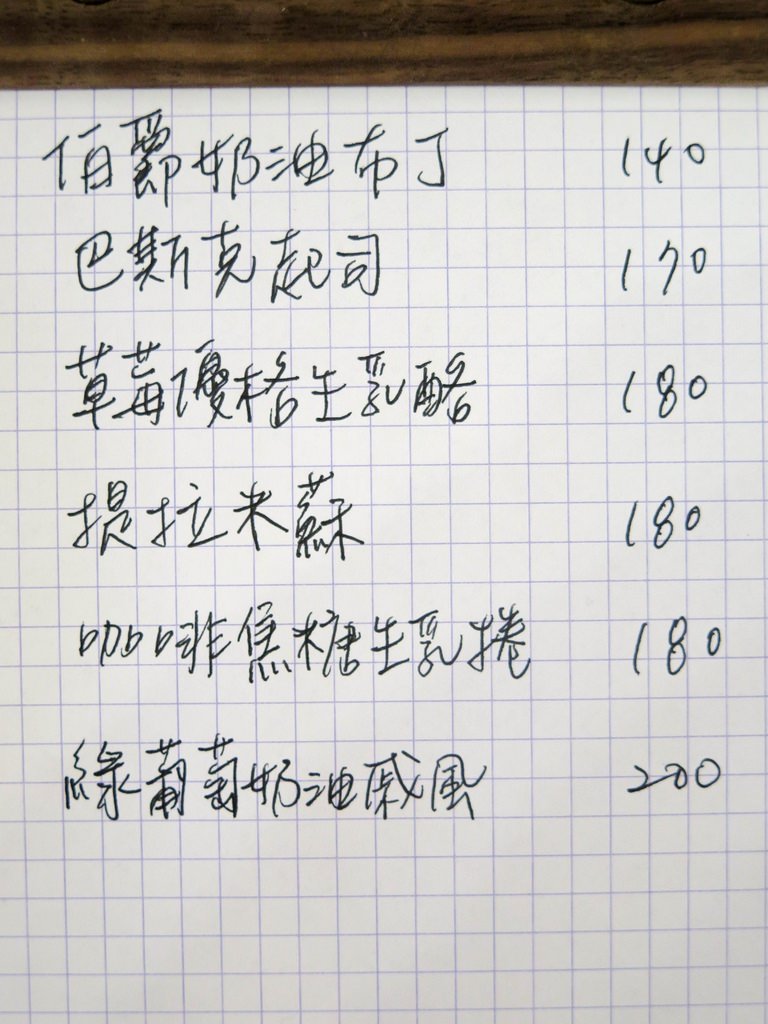 伯爵奶油布丁 140
巴斯克起司 170
草莓優格生乳酪 180
提拉米蘇 180
咖啡焦糖生乳捲 180
綠葡萄奶油戚風 200